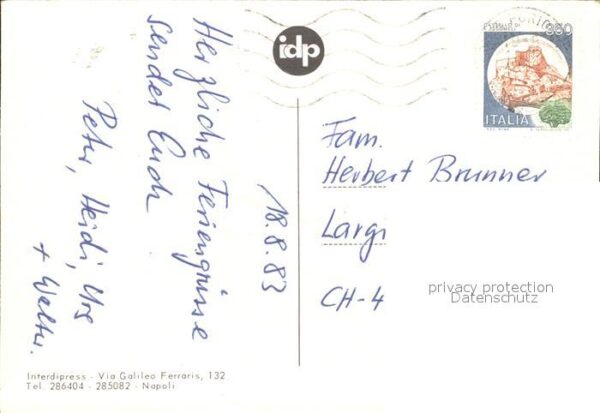 Herzliche Feriengrüsse
sendet Euch
Peter, Heidi, Urs
+ Walter.
18.8.83
idp
350
ITALIA
Fam.
Herbert Brunner
Largi
CH-4
privacy protection
Datenschutz
Interdipress - Via Galileo Ferraris, 132
Tel. 286404 - 285082 - Napoli